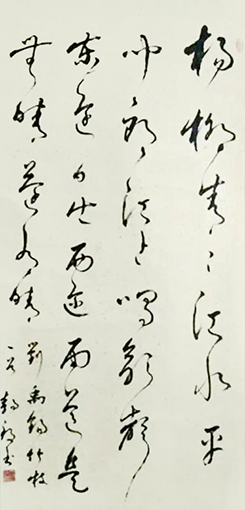 杨柳青ミ江水平
闻郎江上唱歌声
东边日出西边雨道是
无晴还有晴
刘禹锡竹枝
一首